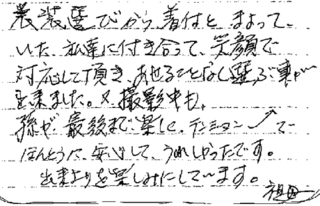 衣装選びから着付とまよって、
いた、私達に付き合って、笑顔で
対応して頂き、あせることなく選ぶ事が
出来ました。又、撮影中も、
孫が最後まで楽しく、テンション
ほんとうに、安心して、うれしかったです。
出来上りを楽しみにしています。
祖母